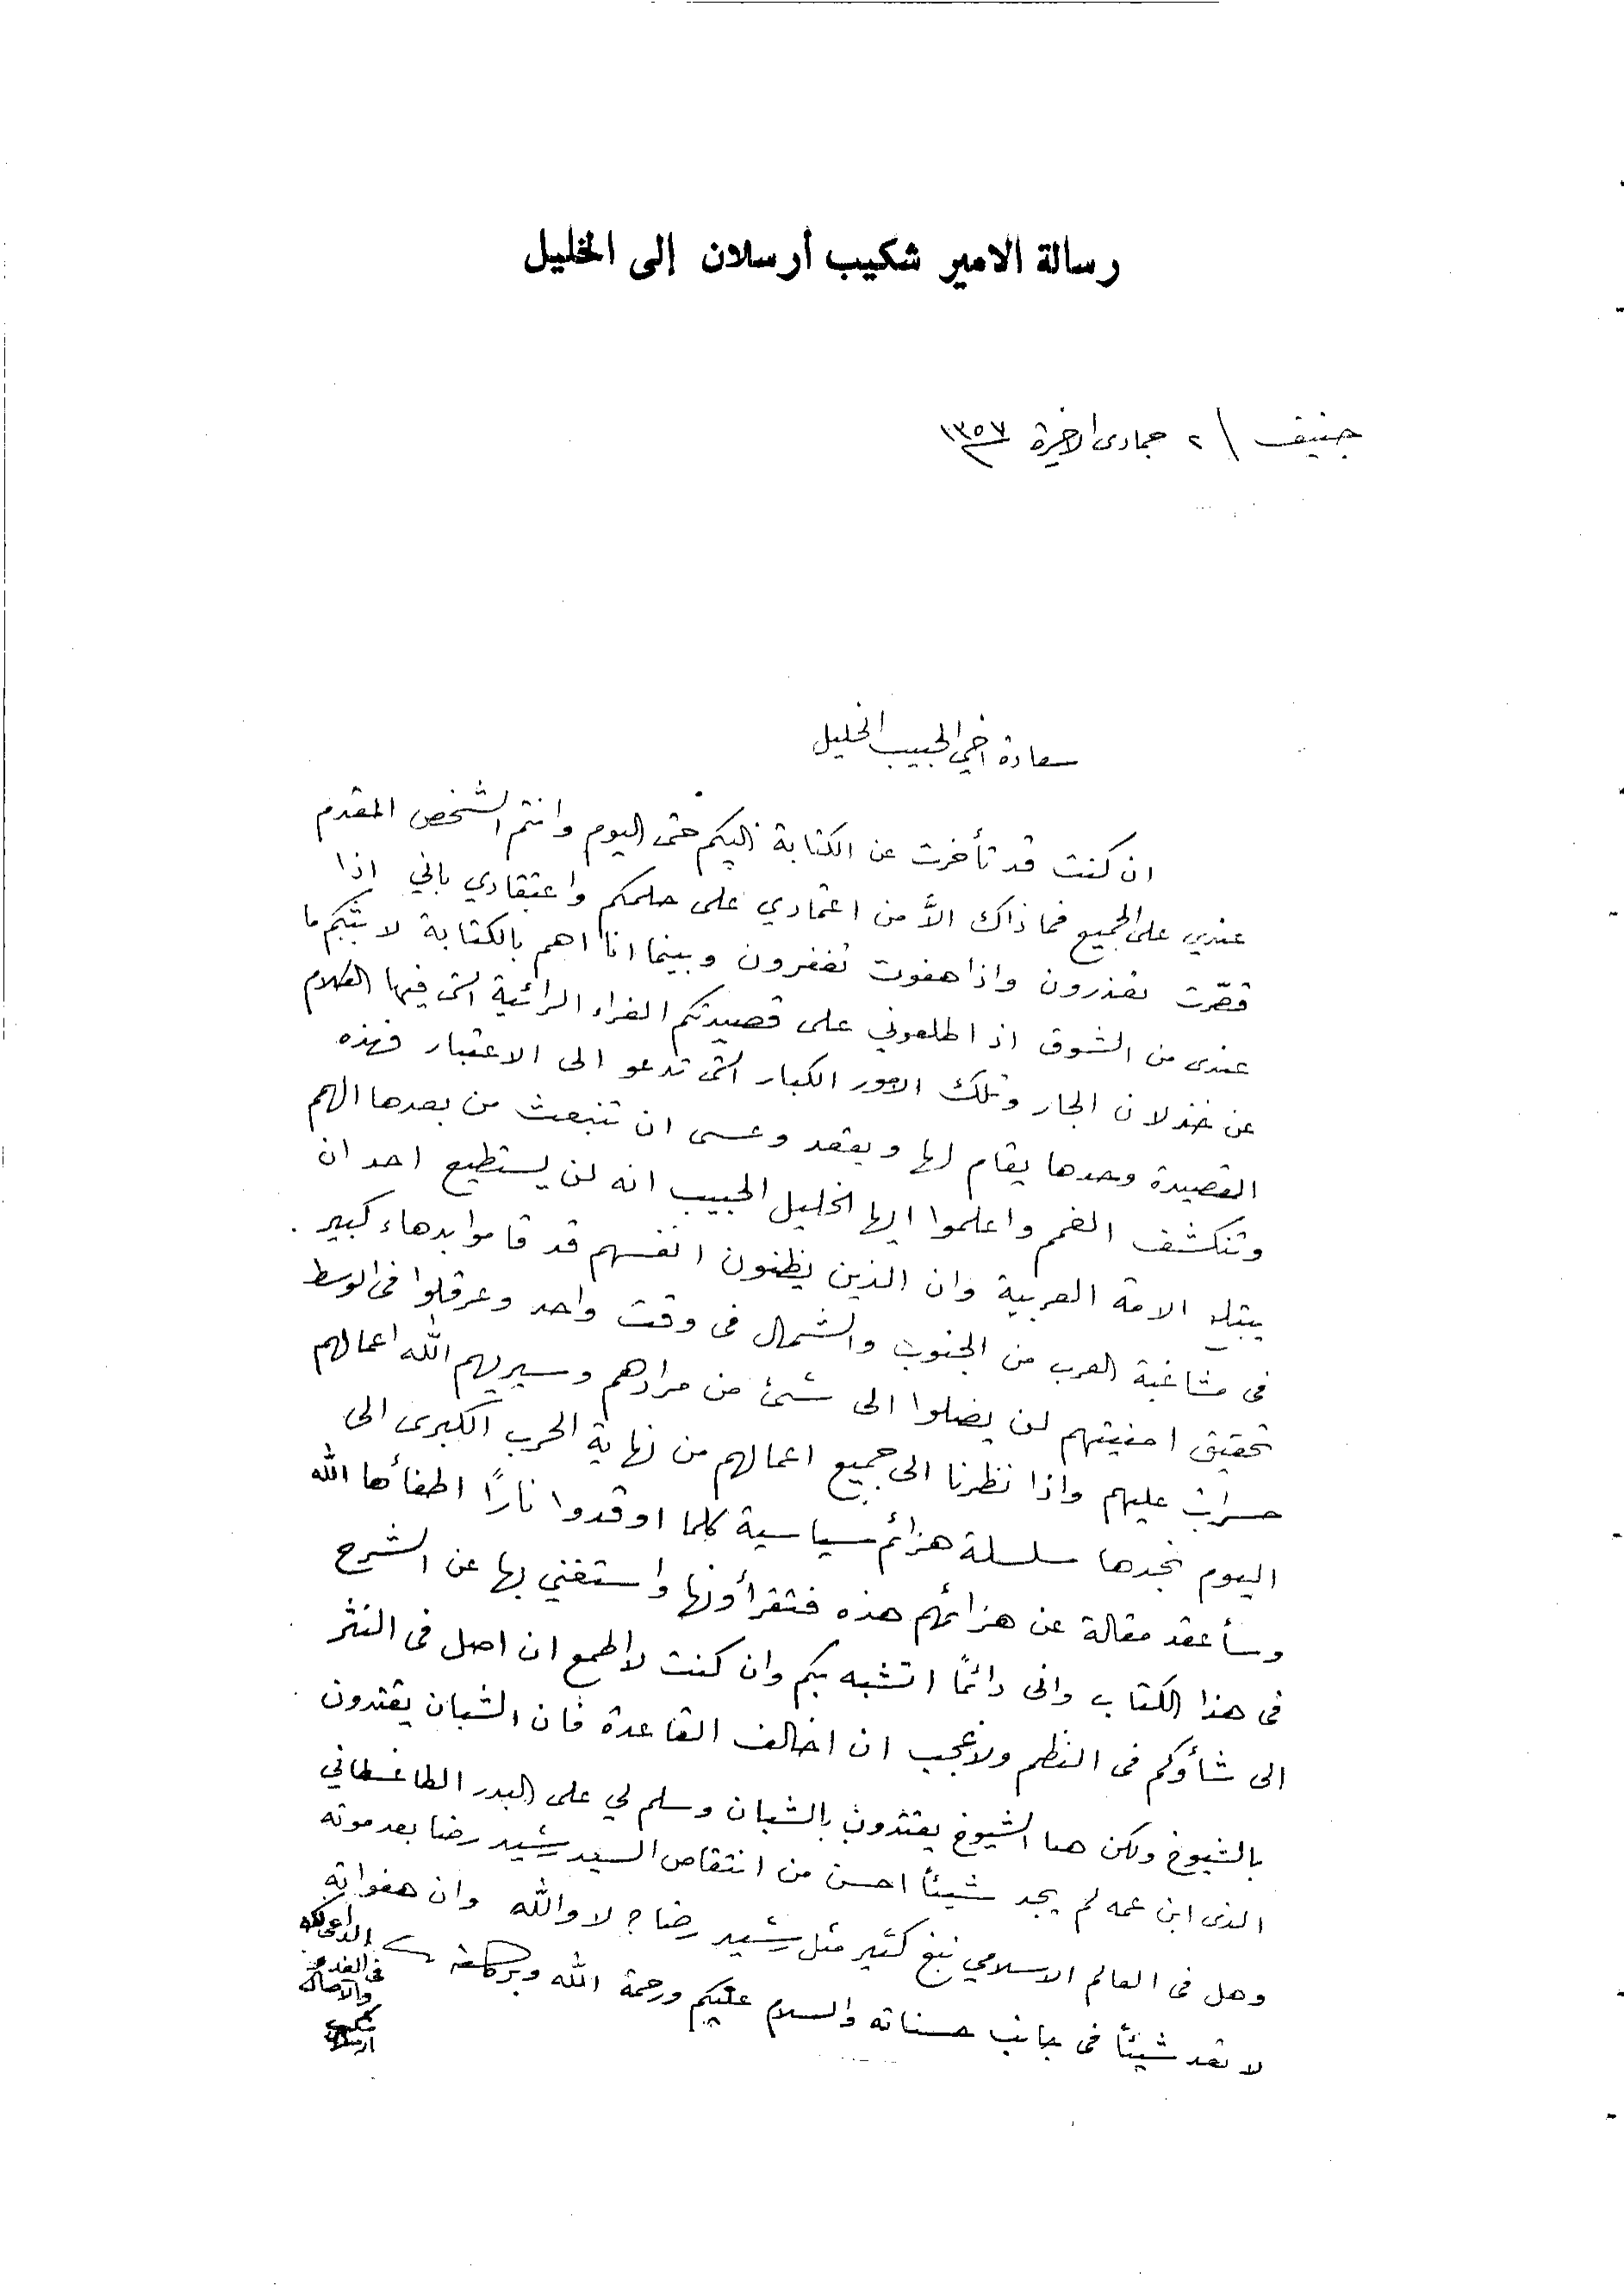 رسالة الامير شكيب أرسلان إلى الخليل
جنيف / ٢ جمادى الاخيرة ١٣٥٧
سعادة اخي الحبيب الخليل
ان كنت قد تأخرت عن الكتابة اليكم حتى اليوم وانتم الشخص المقدم
عندي على الجميع فما ذاك الاّ من اعتمادي على حلمكم واعتقادي باني اذا
قصّرت تعذرون واذا هفوت تغفرون وبينما انا اهم بالكتابة لابثكم ما
عندى من الشوق اذ اطلعوني على قصيدتكم الغراء الرائية التى فيها الكلام
عن خذلان الجار وتلك الامور الكبار التى تدعو الى الاعتبار فهذه
القصيدة وحدها يقام لها ويقعد وعسى ان تنبعث من بعدها الهمم
وتنكشف الغمم واعلموا ايها الخليل الحبيب انه لن يستطيع احد ان
الامة العربية وان الذين يظنون انفسهم قد قاموا بدهاء كبير
فى مشاغبة العرب من الجنوب والشمال فى وقت واحد وعرقلوا فى الوسط
تحقيق امنيتهم لن يصلوا الى شئ من مرادهم وسيريهم الله اعمالهم
حسرات عليهم واذا نظرنا الى جميع اعمالهم من نهاية الحرب الكبرى الى
اليوم نجدها سلسلة هزائم سياسية كلما اوقدوا نارًا اطفأها الله
وسأعقد مقالة عن هزائمهم هذه فتقرأونها واستغني بها عن الشرح
فى هذا الكتاب وانى دائمًا اتشبه بكم وان كنت لا اطمع ان اصل فى النثر
الى شأوكم فى النظم ولا عجب ان اخالف القاعدة فان الشبان يقتدون
بالشيوخ ولكن هنا الشيوخ يقتدون بالشبان وسلم لي على البدر الطاغستاني
الذى ابن عمه لم يجد شيئاً احسن من انتقاص السيد رشيد رضا بعد موته
وهل فى العالم الاسلامي نبغ كثير مثل رشيد رضا ؟ لا والله وان هفواته
لا تعد شيئاً فى جانب حسناته والسلام عليكم ورحمة الله وبركاته
الداعى لكم
فى الغدو
والآصال
شكيب
ارسلان